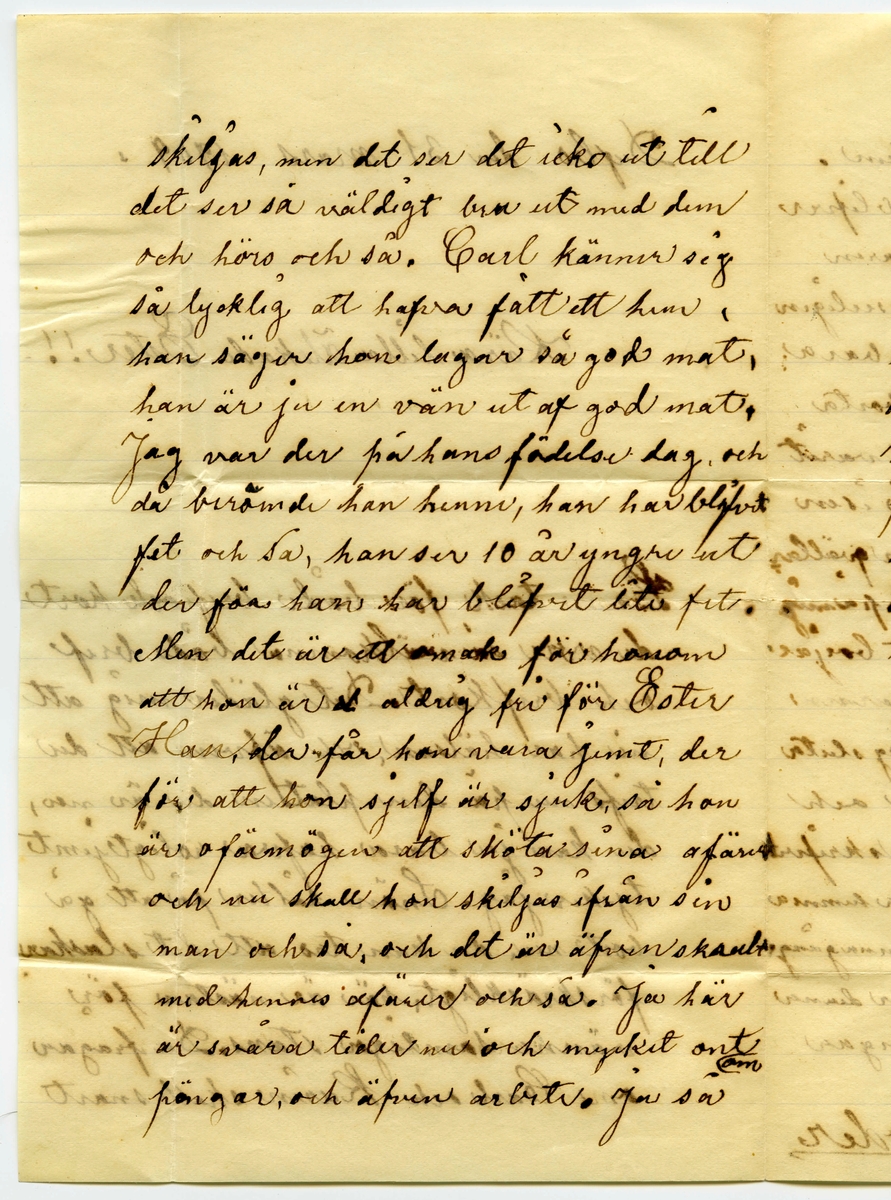 skiljas, men det ser det icke ut till
det ser så väldigt bra ut med dem
och hörs och så. Carl känner sig
så lycklig att hafva fått ett hem,
han säger hon lagar så god mat,
han är ju en vän ut af god mat.
Jag var der på hans födelse dag, och
då berömde han henne, han har blifvit
fet och så, han ser 10 år yngre ut
der för han har blifvit lite fet.
Men det är ett omak för honom
att hon är aldrig fri för Ester
Han, der får hon vara jemt, der
för att hon sjelf är sjuk, så hon
är oförmögen att sköta sina afärer
och nu skall hon skiljas ifrån sin
man och så, och det är äfven skralt
med hennes afärer och så. Ja här
är svåra tider nu och mycket ont
om
pängar, och äfven arbete. Ja så